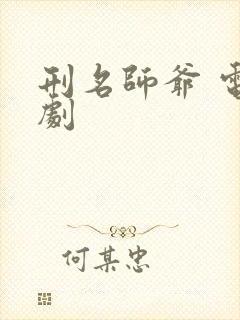 刑名師爺 電
劇
何某忠